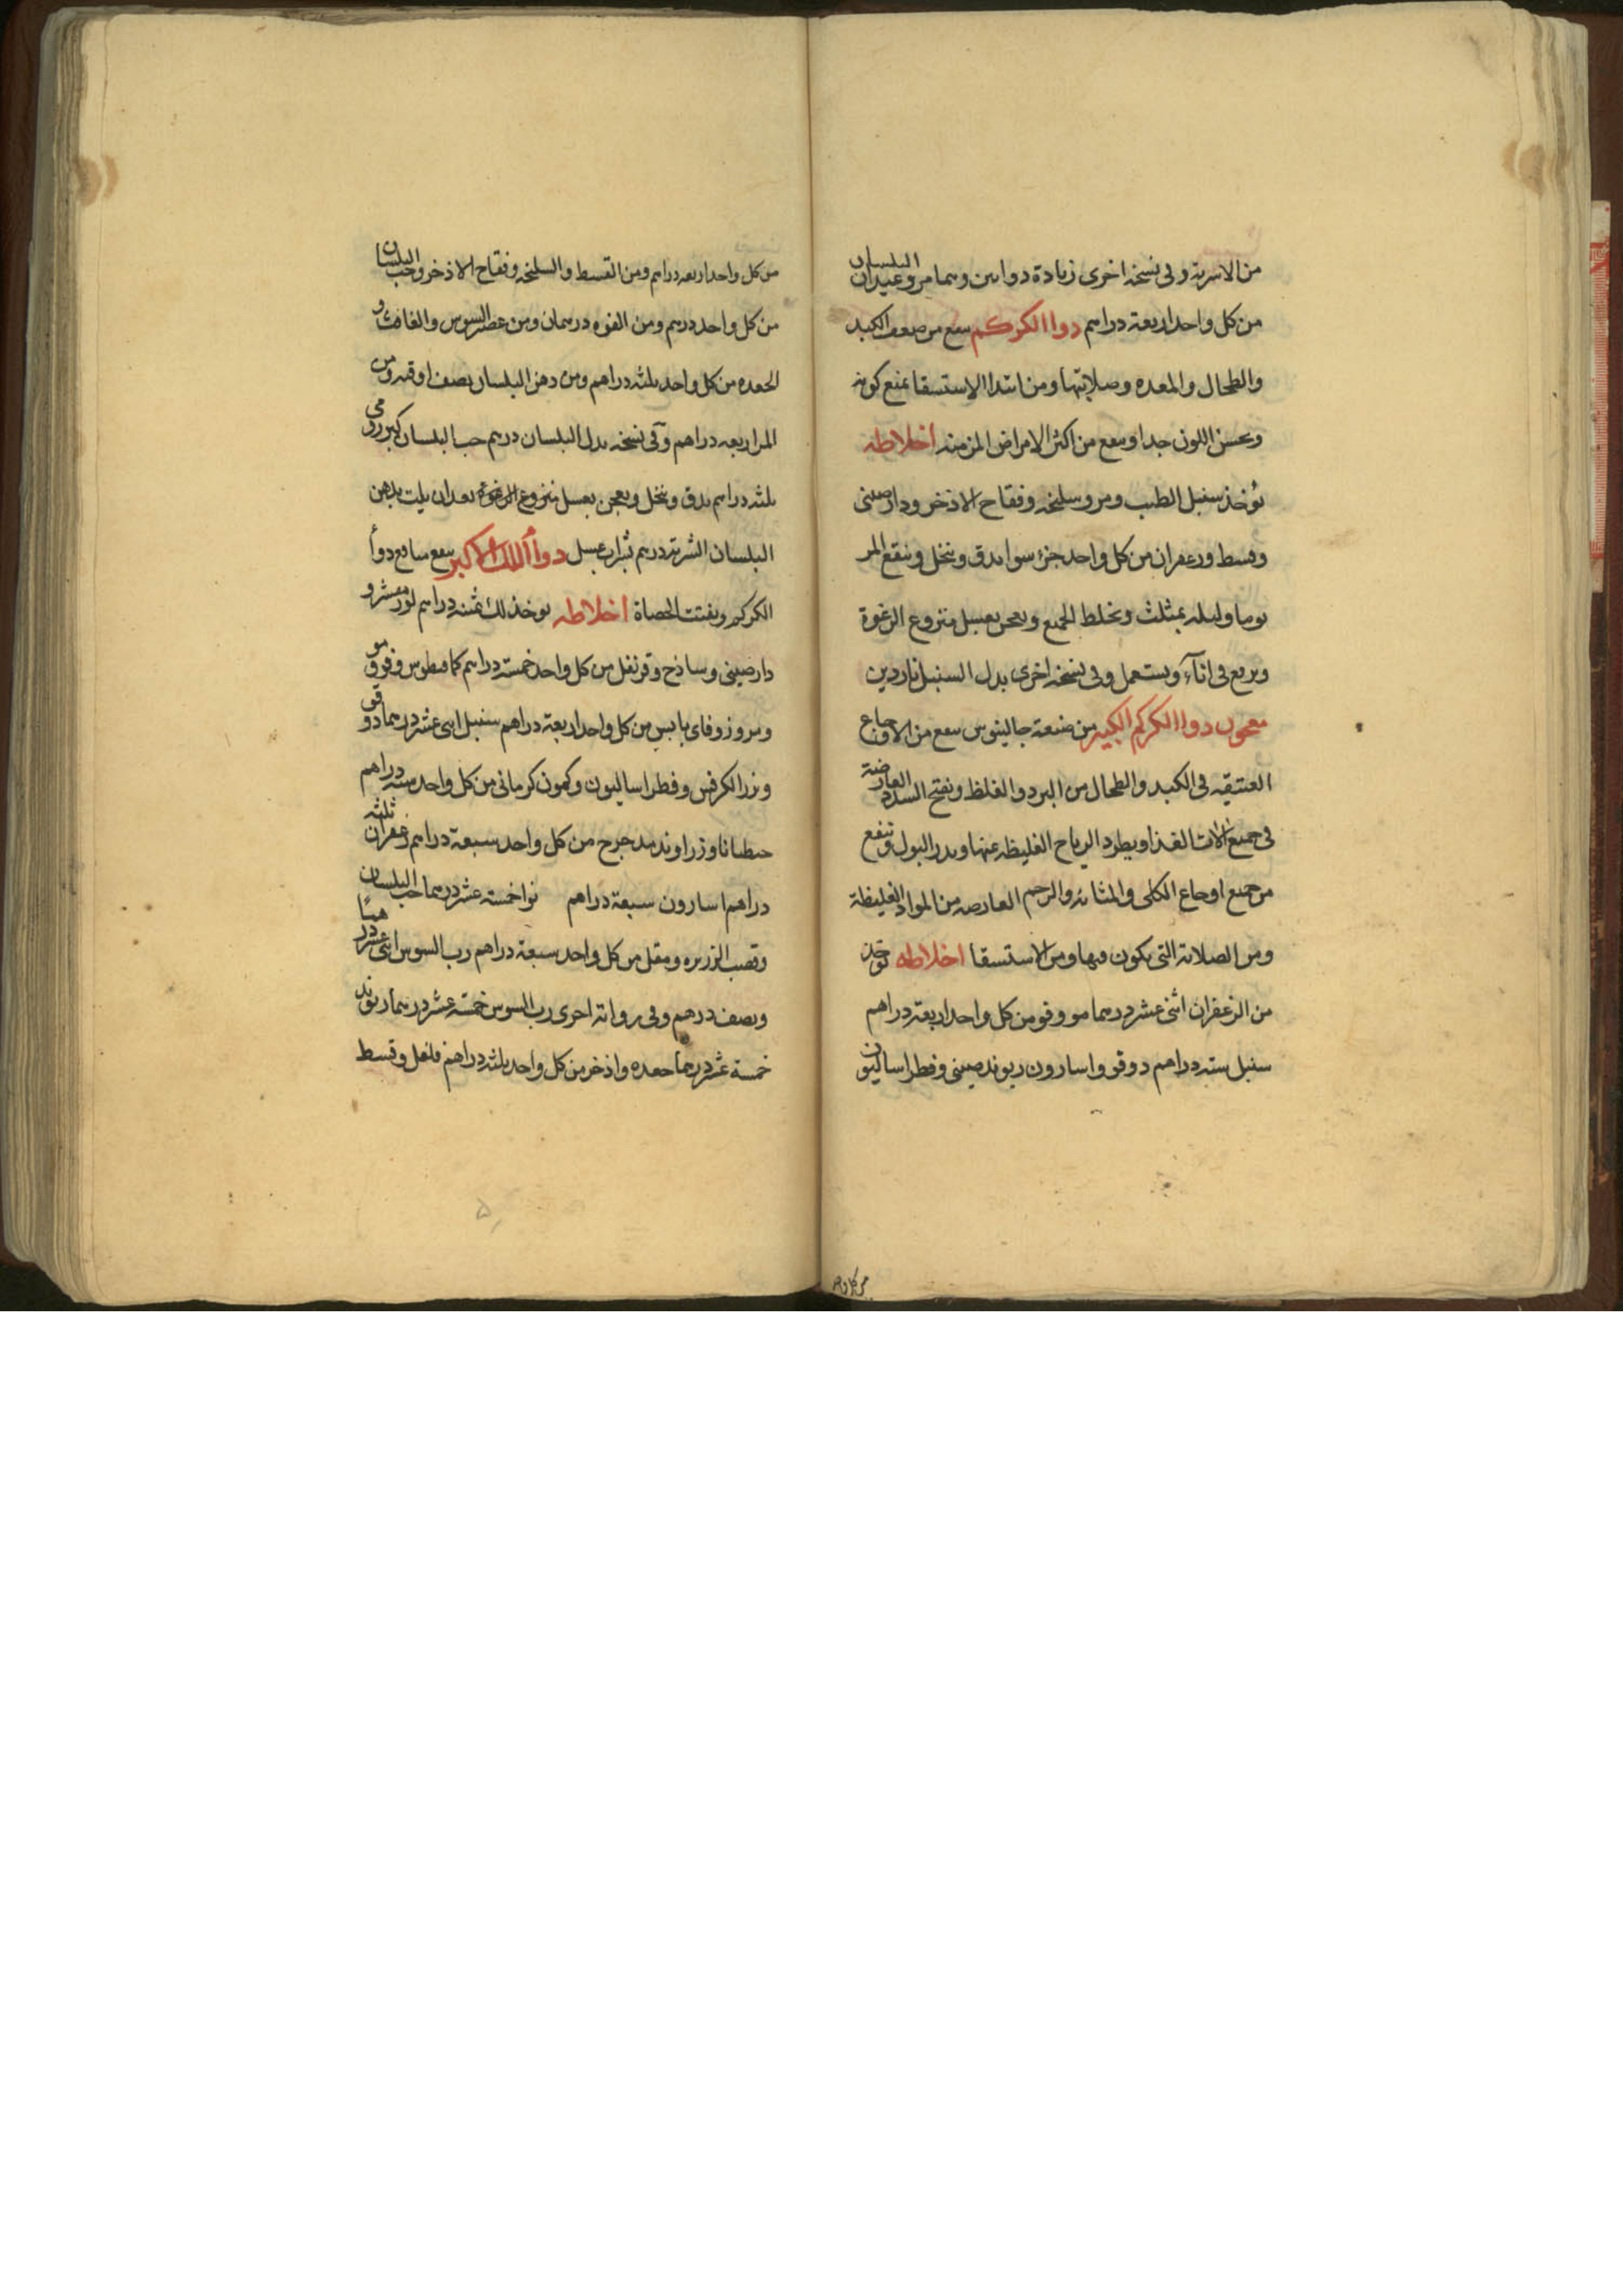 من الاسربة وفى نسخة اخرى زيادة دواىين وهما مر وعيدان البلسان
من كل واحد اربعة دراهم دوا الكركم ىىفع من ضعف الكبد
والطحال والمعده وصلابتها ومن ابتدا الاستسقا يمنع كونه
ويحسن اللون جدا وىىفع من اكثر الامراض المزمنه اخلاطه
ىؤخذ سنبل الطيب ومر وسليخه وفقاح الاذخر ودارصينى
وقسط وزعفران من كل واحد جزء سوا يدق وينخل وينقع المر
يوما وليله بمثلث ويخلط الجميع ويعجن بعسل منزوع الرغوة
ويرفع فى اناء ويستعمل وفى نسخه اخرى بدل السنبل ناردين
معجون دوا الكركم الكبير من صنعة جالينوس ينفع من الاوجاع
العتيقه فى الكبد والطحال من البرد والغلظ ويفتح السدد العارضة
فى جميع الات الغذا ويطرد الرياح الغليظه عنها ويدر البول وينفع
من جميع اوجاع الكلى والمثانه والرحم العارضه من المواد الغليظة
ومن الصلابة التى يكون فيها ومن الاستسقا اخلاطه يؤخذ
من الزعفران اثنى عشر درهما مو وفو من كل واحد اربعة دراهم
سنبل سته دراهم دوقو واسارون ريوند صينى وفطراساليون
من كل واحد
من كل واحد اربعه دراهم ومن القسط والسليخه وفقاح الاذخر وحب البلسان
من كل واحد درهم ومن الفوه درهمان ومن عصير السوس والغافث و
الجعده من كل واحد ثلثه دراهم ومن دهن البلسان نصف اوقيه ومن
المر اربعه دراهم وفى نسخه بدل البلسان درهم حب البلسان كبر رومى
ثلثه دراهم يدق وينخل ويعجن بعسل منزوع الرغوة بعد ان يلت بدهن
البلسان الشربة درهم بشراب عسل دوا اللك الاكبر ينفع منافع دوا
الكركم ويفتت الحصاة اخلاطه يوخذ لك ثمنيه دراهم لوز مقشر و
دارصينى وساذج وقرنفل من كل واحد خمسة دراهم كمافيطوس وفو و مو
ومر وزوفاى يابس من كل واحد اربعة دراهم سنبل اثنى عشر درهما دوقو
وبزر الكرفس وفطراساليون وكمون كرمانى من كل واحد سته دراهم
جنطيانا وزراوند مدحرج من كل واحد سبعة دراهم زعفران ثلثه
دراهم اسارون سبعة دراهم خمسة عشر درهما حب البلسان
وقصب الذريره ومقل من كل واحد سبعة دراهم رب السوس اثنى عشر درهما
ونصف درهم وفى رواية اخرى رب السوس خمسة عشر درهما ريوند
خمسة عشر درهما جعده واذخر من كل واحد ثلثه دراهم فلفل وقسط